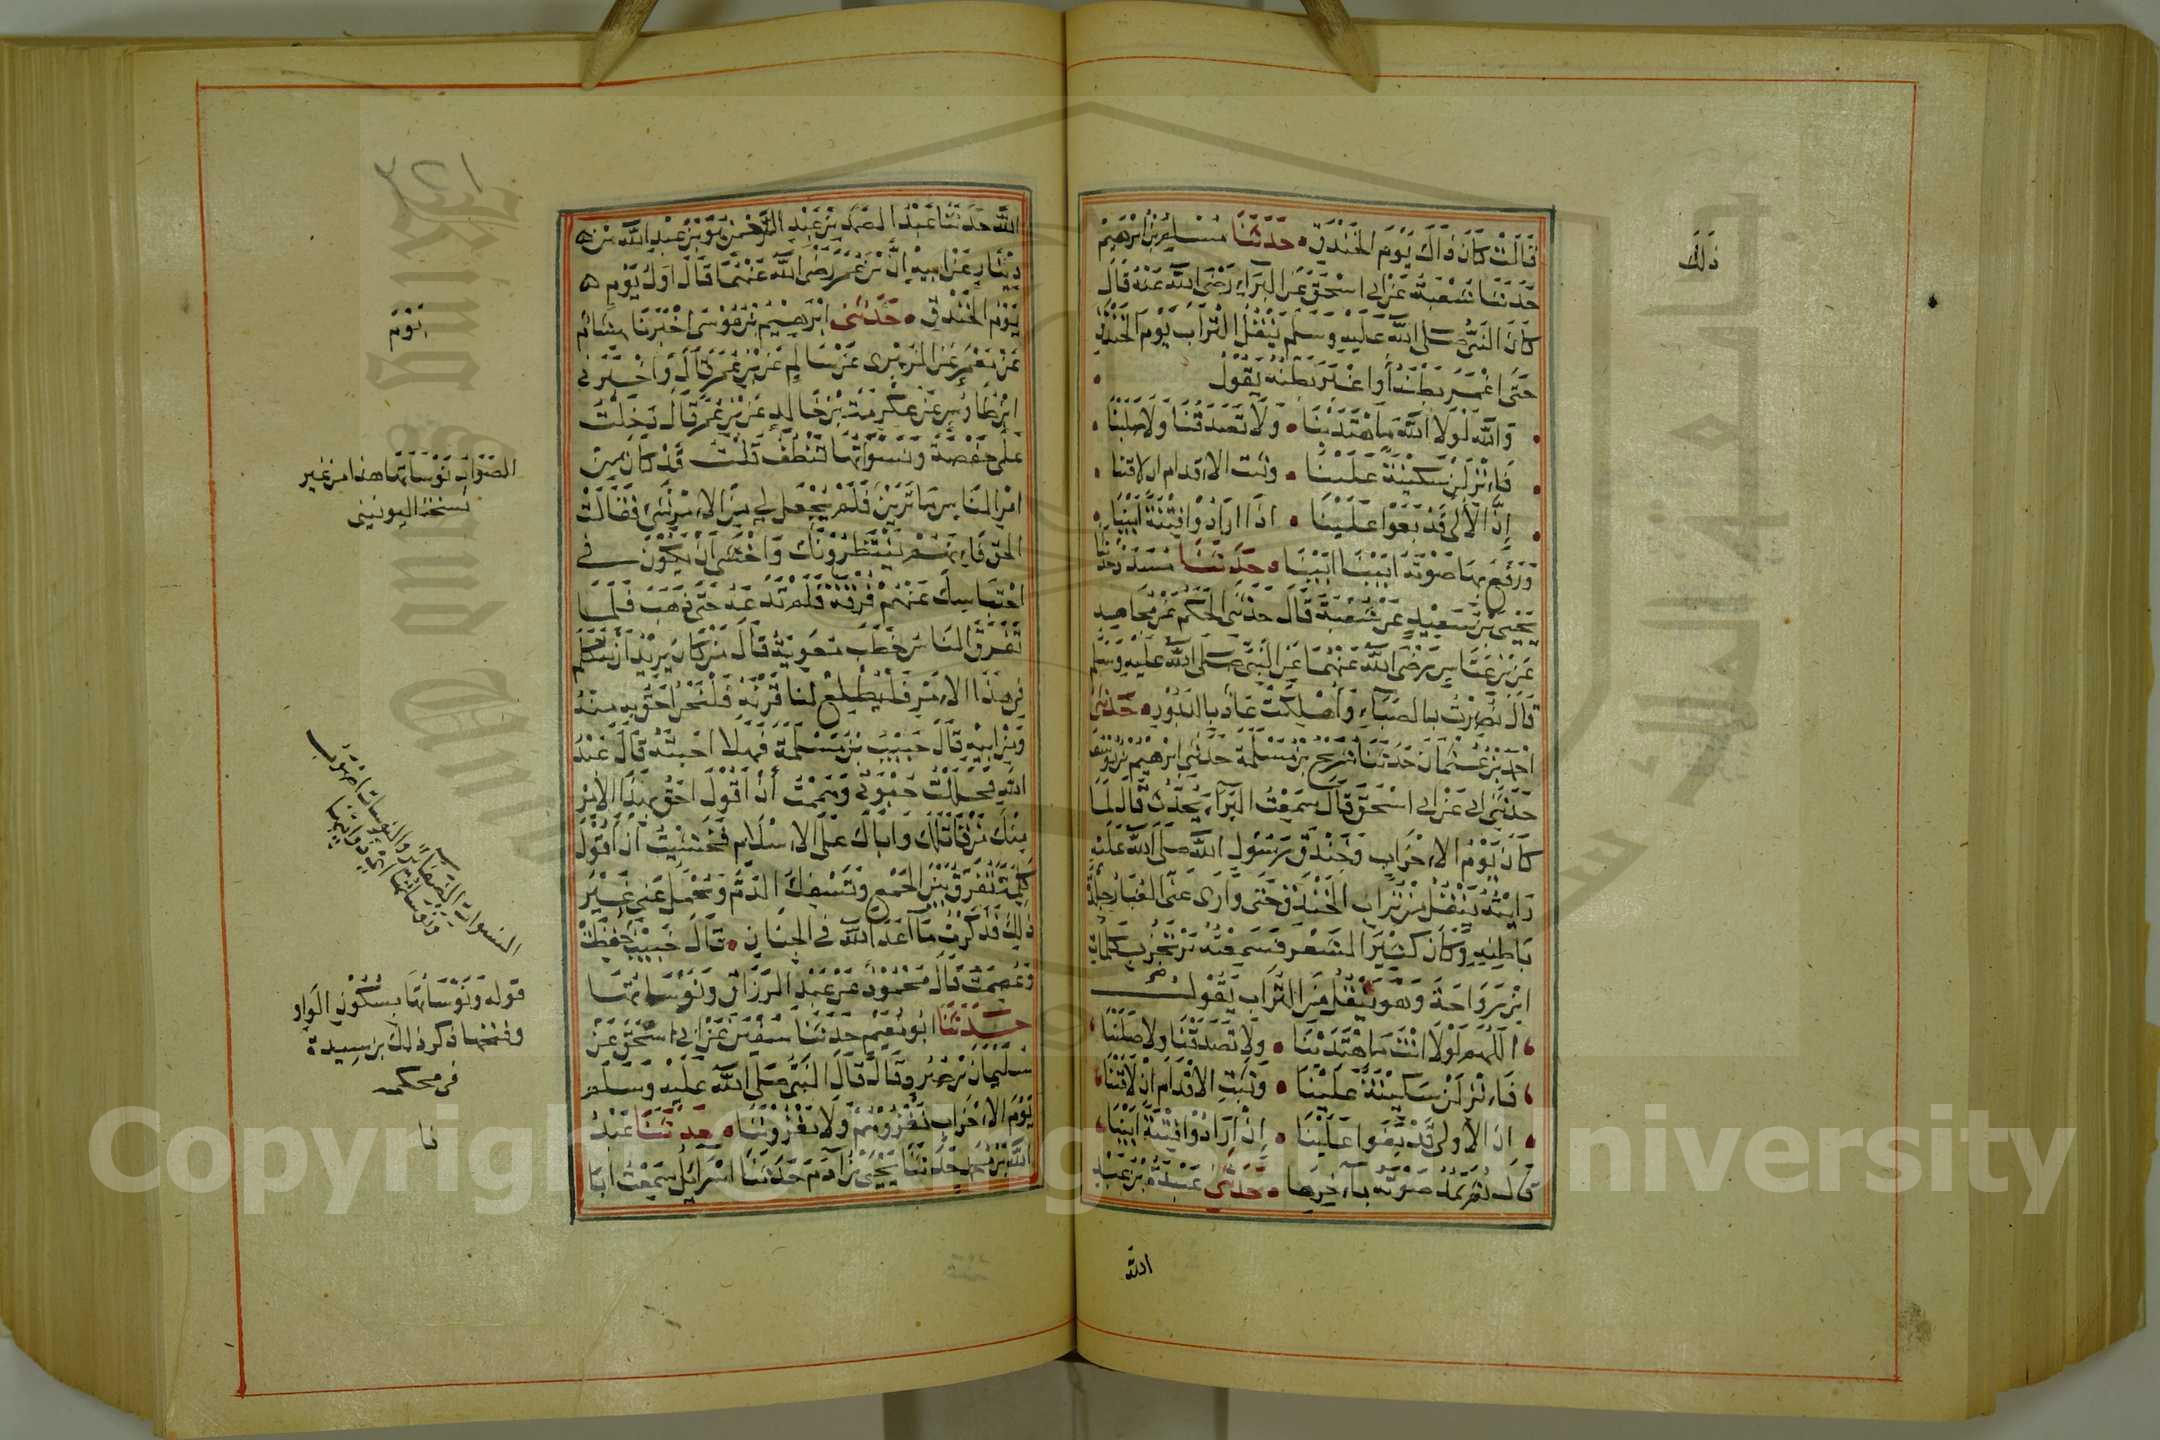 قَالَتْ كَانَ ذَاكَ يَوْمَ الْخَنْدَقِ حَدَّثَنَا مُسْلِمُ بْنُ اِبْرٰهِيْمَ
حَدَّثَنَا شُعْبَةُ عَنْ اَبِي اسْحٰقَ عَنِ الْبَرَاءِ رَضِيَ اللّٰهُ عَنْهُ قَالَ
كَانَ النَّبِيُّ صلى اللّٰه عَلَيْهِ وَسَلَّمَ يَنْقُلُ التُّرَابَ يَوْمَ الْخَنْدَقِ
حَتَّى اغْمَرَ بَطْنَهُ أَوِ اغْبَرَّ بَطْنُهُ يَقُوْلُ
وَاللّٰهِ لَوْلَا اللّٰهُ مَا اهْتَدَيْنَا وَلَا تَصَدَّقْنَا وَلَا صَلَّيْنَا
فَاَنْزِلَنْ سَكِيْنَةً عَلَيْنَا وثبت الاقدام ان لاقينا
اِنَّ الْأُلَى قَدْ بَغَوْا عَلَيْنَا اذَا ارَادُوْا فِتْنَةً اَبَيْنَا
وَرَفَعَ بِهَا صَوْتَهُ اَبَيْنَا اَبَيْنَا حَدَّثَنَا مُسَدَّد حدثنا
يَحْيَى بْنُ سَعِيْدٍ عَنْ شُعْبَةَ قَالَ حَدَّثَنِي الْحَكَمُ عَنْ مُجَاهِدٍ
عَنِ بْنِ عَبَّاسٍ رَضِيَ اللّٰه عَنْهُمَا عَنِ النَّبِيِّ صَلَّى اللّٰه عَلَيْهِ وَسَلَّم
قَالَ نُصِرْتُ بالصَّبَا وَأُهْلِكَتْ عَادٌ بِالدَّبُوْرِ حَدَّثَنِي
احْمَدُ بْنُ عُثْمَانَ حَدَّثَنَا شُرَيْحُ بْنُ مَسْلَمَةَ حَدَّثَنِي ابْرٰهِيْمُ بْنُ يُوْسُفَ
حَدَّثَنِي اَبِي عَنْ اَبِي اسْحٰقَ قَالَ سَمِعْتُ الْبَرَاءَ يُحَدِّثُ قَالَ لَمَّا
كَانَ يَوْمُ الْاَحْزَابِ وَخَنْدَقَ رَسُوْلُ اللّٰهِ صَلَّى اللّٰه عَلَيْهِ
رَاَيْتُهُ يَنْقُلُ مِنْ تُرَابِ الْخَنْدَقِ حَتَّى وَارَى عَنِّي الْغُبَارُ جِلْدَةَ
بَاطِنِهِ وَكَانَ كَثِيْرَ الشَّعَرِ فَسَمِعْتُهُ يَرْتَجِزُ بِكَلِمَاتِ
ابْنِ رَوَاحَةَ وَهُوَ يَنْقُلُ مِنَ التُّرَابِ يَقُوْلُ
اللّٰهُمَّ لَوْلَا انْتَ مَا اهْتَدَيْنَا وَلَا تَصَدَّقْنَا ولا صَلَّيْنَا
فَاَنْزِلَنْ سَكِيْنَةً عَلَيْنَا وَثَبِّتِ الْاَقْدَامَ اِنْ لَاقَيْنَا
ان الاولى قَدْ بَغَوا عَلَيْنَا اِنْ اَرَادُوْا فِتْنَةً اَبَيْنَا
قَالَ ثُمَّ يَمُدُّ صَوْتَهُ بِآخِرِهَا حَدَّثَنِي عَبْدَةُ بْنُ عَبْدِ
اللّٰه
ذٰلِكَ
اللّٰهِ حَدَّثَنَا عَبْدُ الصَّمَدِ بْنُ عَبْدِ الرَّحْمٰنِ هُوَ بْنُ عَبْدِ اللّٰهِ بْنِ
دِيْنَارٍ عَنْ اَبِيْهِ اَنَّ بْنَ عُمَرَ رَضِيَ اللّٰه عَنْهُمَا قَالَ اَوَّلُ يَوْمٍ
يَوْمُ الْخَنْدَقِ حَدَّثَنِي اِبْرٰهِيْمُ بْنُ مُوْسَى اَخْبَرَنَا هِشَامٌ
عَنْ مَعْمَرٍ عَنِ الزُّهْرِيِّ عَنْ سَالِمٍ عَنِ بْنِ عُمَرَ قَالَ وَاَخْبَرَنِي
ابْنُ طَاوُسٍ عَنْ عِكْرِمَةَ بْنِ خَالِدٍ عَنِ بْنِ عُمَرَ قَالَ دَخَلْتُ
عَلَى حَفْصَةَ وَنَسْوَاتُهَا تَنْطُفُ قُلْتُ قَدْ كَانَ مِنْ
اَمْرِ النَّاسِ مَا تَرَيْنَ فَلَمْ يُجْعَلْ لِي مِنَ الْاَمْرِ شَيْئٌ فَقَالَتْ
الْحَقْ فَاِنَّهُمْ يَنْتَظِرُوْنَكَ وَاَخْشَى اَنْ يَكُوْنَ فِي
احْتِبَاسِكَ عَنْهُمْ فُرْقَةٌ فَلَمْ تَدَعْهُ حَتَّى ذَهَبَ فَلَمَّا
تَفَرَّقَ النَّاسُ خَطَبَ مُعٰوِيَةُ قَالَ مَنْ كَانَ يُرِيْدُ اَنْ يَتَكَلَّمَ
فِي هٰذَا الْاَمْرِ فَلْيُطْلِعْ لَنَا قَرْنَهُ فَلَنَحْنُ اَحَقُّ بِهِ مِنْهُ
وَمِنْ اَبِيْهِ قَالَ حَبِيْبُ بْنُ مَسْلَمَةَ فَهَلَّا اَجَبْتَهُ قَالَ عَبْدُ
اللّٰهِ فَحَلَلْتُ حُبْوَتِي وَهَمَمْتُ أَنْ اَقُوْلَ اَحَقُّ بِهٰذَا الْاَمْرِ
مِنْكَ مَنْ قَاتَلَكَ وَاَبَاكَ عَلَى الْاِسْلَامِ فَخَشِيْتُ اَنْ اَقُوْلَ
كَلِمَةً تُفَرِّقُ بَيْنَ الْجَمْعِ وَتَسْفِكُ الدَّمَ وَيُحْمَلُ عَنِّي غَيْرُ
ذٰلِكَ فَذَكَرْتُ مَا اَعَدَّ اللّٰهُ فِي الْجِنَانِ قَالَ حَبِيْبٌ حُفِظْتَ
وَعُصِمْتَ قَالَ مَحْمُوْدٌ عَنْ عَبْدِ الرَّزَّاقِ وَنَوْسَاتُهَا
حَدَّثَنَا اَبُو نُعَيْمٍ حَدَّثَنَا سُفْيٰنُ عَنْ اَبِي اسْحٰقَ عَنْ
سُلَيْمَانَ بْنِ صُرَدٍ قَالَ قَالَ النَّبِيُّ صَلَّى اللّٰه عَلَيْهِ وَسَلَّمَ
يَوْمَ الْاَحْزَابِ نَغْزُوْهُمْ وَلَا يَغْزُوْنَنَا حَدَّثَنَا عَبْدُ
اللّٰهِ بْنُ مُحَمَّدٍ حَدَّثَنَا يَحْيَى بْنُ آدَمَ حَدَّثَنَا اسْرَائِيْلُ سَمِعْتُ اَبَا
٢٤١
يَوْمَ
الصَّوَابُ نَوْسَاتُهَا هٰذَا مِنْ غَيْرِ
نسخة اليونيني
قوله وَنَوْسَاتُهَا بِسُكُوْنِ الْوَاوِ
وفتحها ذكر ذلك بن سيدة
في محكمه
Copyright © King Saud University
King Saud University